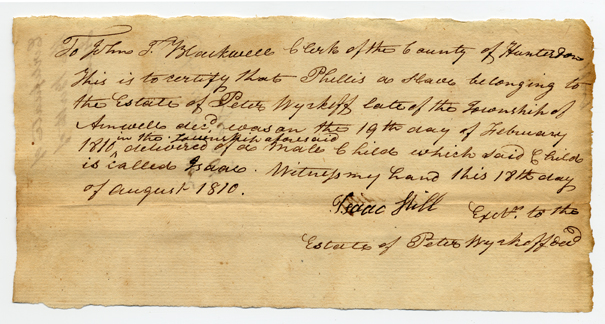 To John T. Blackwell Clerk of the County of Hunterdon
This is to certify that Phillis a Slave belonging to
the Estate of Peter Wyckoff late of the Township of
Amwell decd. was on the 19th day of February
in the Township aforesaid
1810 delivered of a Male Child which said Child
is called Isaac. Witness my hand this 18th day
of August 1810.
Isaac Hill Exetr. to the
Estate of Peter Wyckoff decd